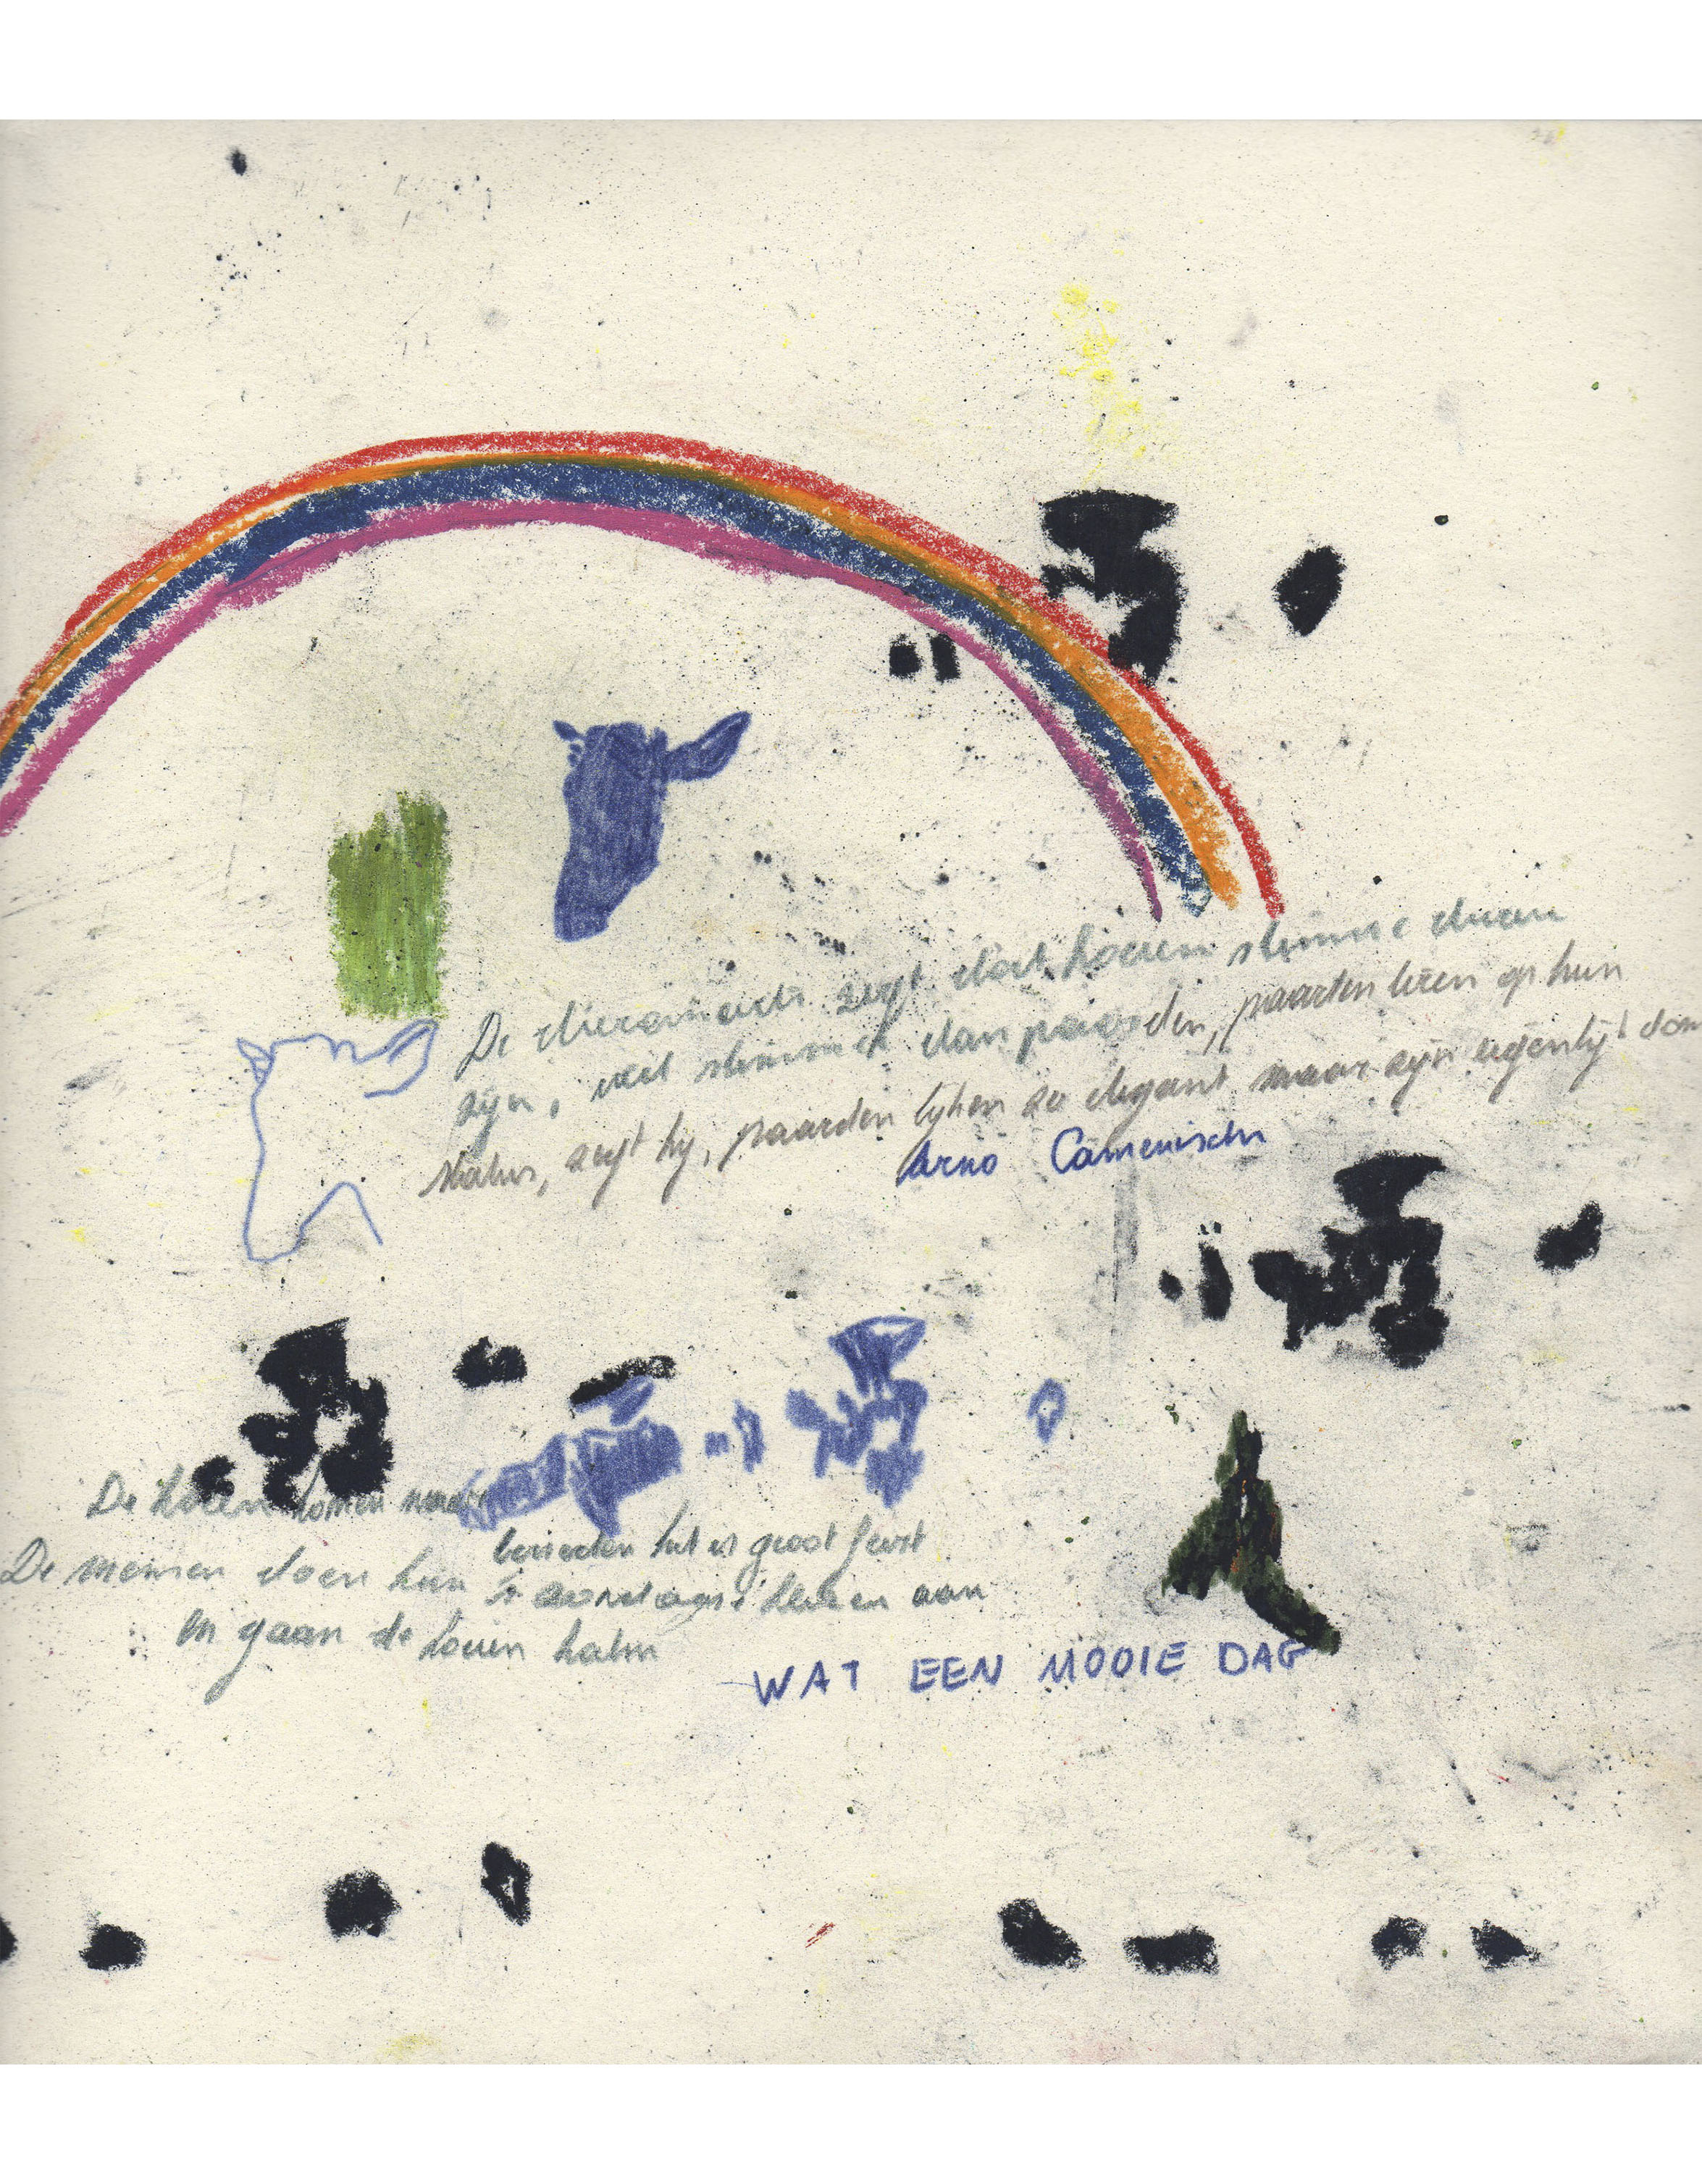 De dierenarts zegt dat koeien slimme dieren
zijn, veel slimmer dan paarden, paarden teren op hun
status, zegt hij, paarden lijken zo elegant maar zijn eigenlijk dom
Arno Camenisch
De koeien komen naar
beneden het is groot feest
De mensen doen hun 's zondagse kleren aan
en gaan de koeien halen
WAT EEN MOOIE DAG